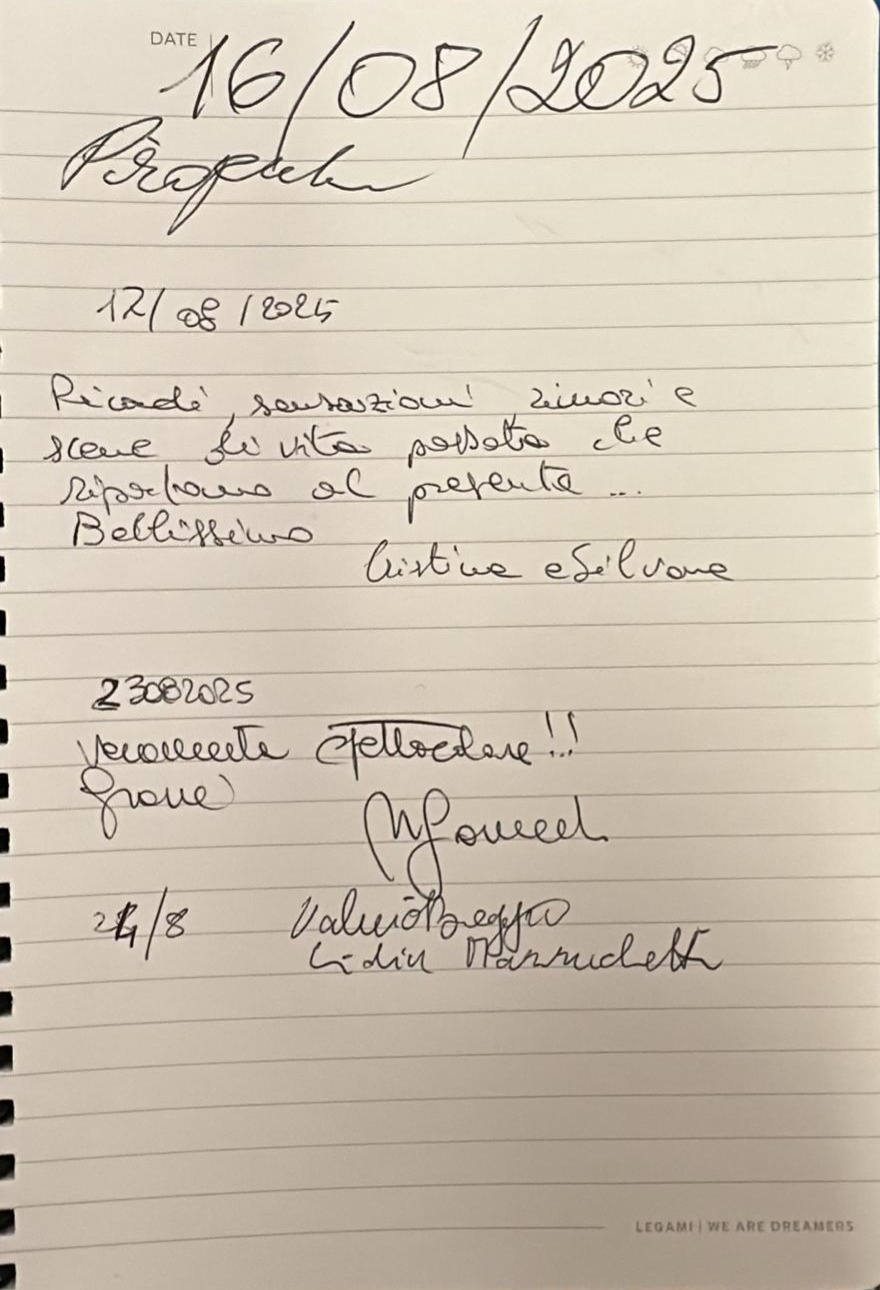 DATE
16/08/2025
17/08/2025
Ricordi, sensazioni rumori e
scene di vita passata che
riportano al presente ...
Bellissimo
Cristina e Silvana
23082025
Veramente spettacolare!!
Grazie
24/8 Valerio Beggio
Lidia Mannucchetti
LEGAMI | WE ARE DREAMERS